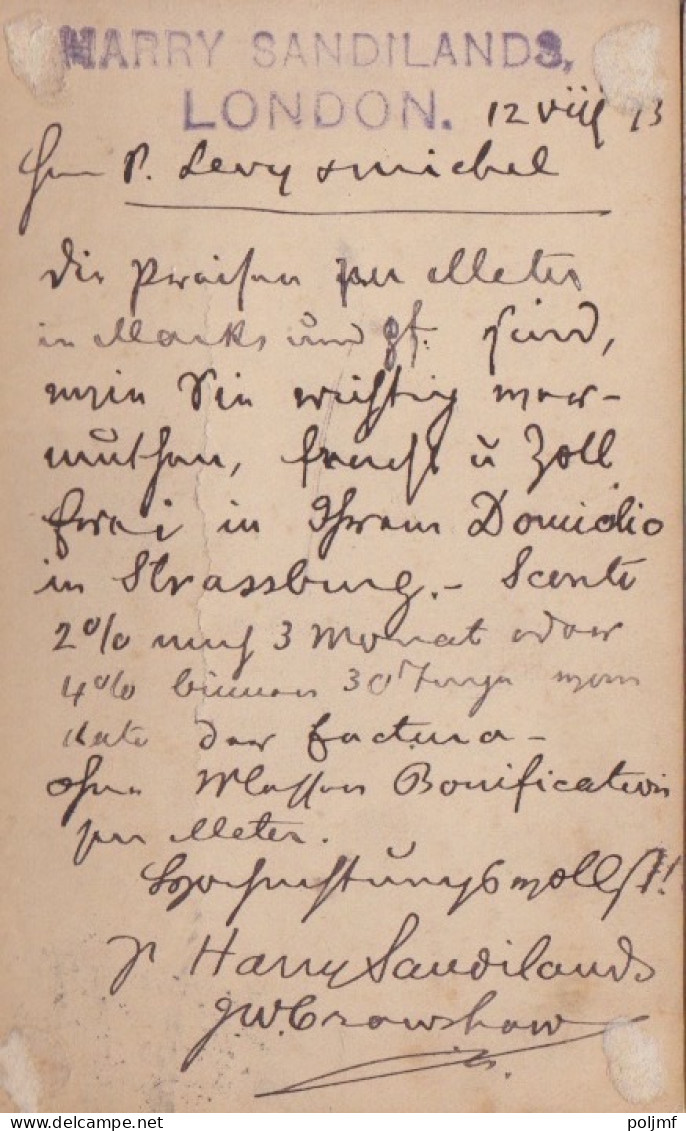 HARRY SANDILANDS,
LONDON.
12 VIII 13
Herrn P. Levy & Michel
Die Preisen per Meter
in Marks und Pf. sind,
wie Sie richtig ver-
muthen, fracht u Zoll
frei in Ihrem Domicilio
in Strassburg. - Sconto
2% nach 3 Monat oder
4% binnen 30 Tage vom
Dato der Factura -
ohne Bonification
per Meter.
Hochachtungsvollst!
p Harry Sandilands
JW. Crowshaw
delcampe.net
poljmf